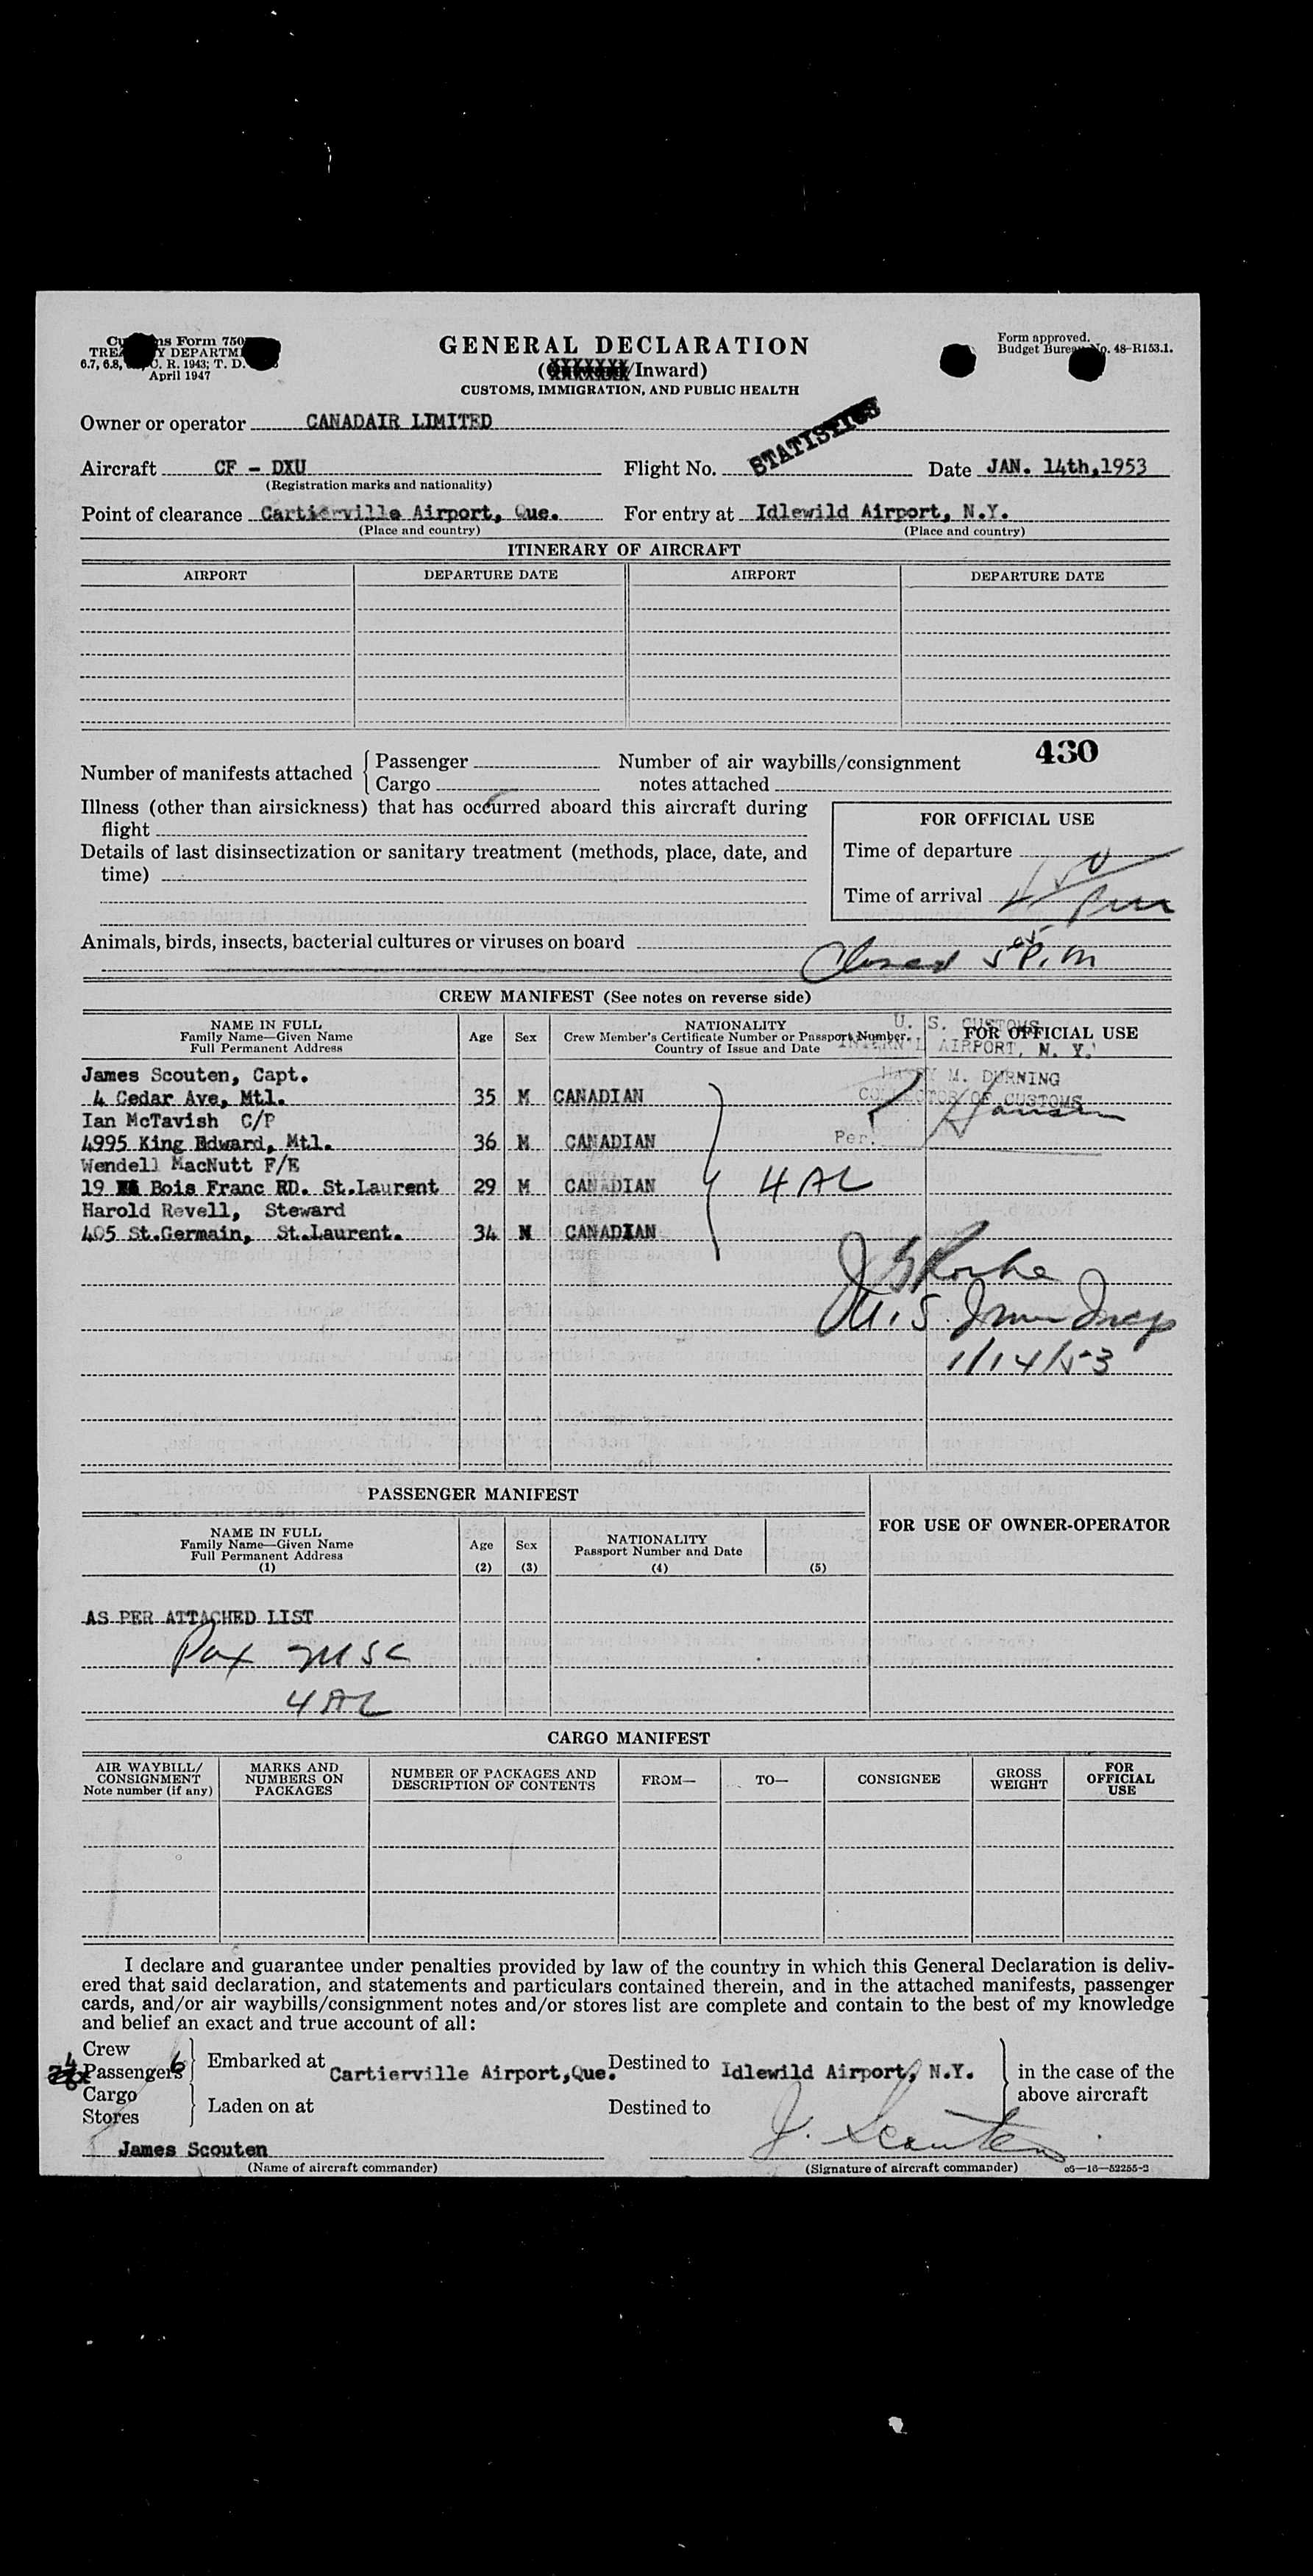 Customs Form 750
TREASURY DEPARTMENT
6.7, 6.8, C. R. 1943; T. D.
April 1947
GENERAL DECLARATION
(/Inward)
CUSTOMS, IMMIGRATION, AND PUBLIC HEALTH
Form approved.
Budget Bureau No. 48-R153.1.
Owner or operator CANADAIR LIMITED
STATISTICS
Aircraft CF - DXU Flight No. Date JAN. 14th,1953
(Registration marks and nationality)
Point of clearance Cartierville Airport, Que. For entry at Idlewild Airport, N.Y.
(Place and country) (Place and country)
ITINERARY OF AIRCRAFT
AIRPORT DEPARTURE DATE AIRPORT DEPARTURE DATE
430
Number of manifests attached { Passenger Number of air waybills/consignment
Cargo notes attached
Illness (other than airsickness) that has occurred aboard this aircraft during
flight
Details of last disinsectization or sanitary treatment (methods, place, date, and
time)
FOR OFFICIAL USE
Time of departure
Time of arrival 4 50 pm
Animals, birds, insects, bacterial cultures or viruses on board
Closed 5 05 P.m
CREW MANIFEST (See notes on reverse side)
NAME IN FULL
Family Name—Given Name
Full Permanent Address
Age Sex
NATIONALITY
Crew Member's Certificate Number or Passport Number.
Country of Issue and Date
FOR OFFICIAL USE
U. S. CUSTOMS
INTERN'L AIRPORT, N. Y.
HARRY M. DURNING
COLLECTOR OF CUSTOMS
Per. Hansen
James Scouten, Capt.
4 Cedar Ave, Mtl. 35 M CANADIAN
Ian McTavish C/P
4995 King Edward, Mtl. 36 M CANADIAN
Wendell MacNutt F/E
19 Bois Franc RD. St.Laurent 29 M CANADIAN 4 AL
Harold Revell, Steward
405 St.Germain, St.Laurent. 34 M CANADIAN
U.S. Imm Insp
1/14/53
PASSENGER MANIFEST
NAME IN FULL
Family Name—Given Name
Full Permanent Address
(1)
Age
(2)
Sex
(3)
NATIONALITY
Passport Number and Date
(4) (5)
FOR USE OF OWNER-OPERATOR
AS PER ATTACHED LIST
Pax
4 AL
CARGO MANIFEST
AIR WAYBILL/
CONSIGNMENT
Note number (if any)
MARKS AND
NUMBERS ON
PACKAGES
NUMBER OF PACKAGES AND
DESCRIPTION OF CONTENTS
FROM— TO— CONSIGNEE
GROSS
WEIGHT
FOR
OFFICIAL
USE
I declare and guarantee under penalties provided by law of the country in which this General Declaration is deliv-
ered that said declaration, and statements and particulars contained therein, and in the attached manifests, passenger
cards, and/or air waybills/consignment notes and/or stores list are complete and contain to the best of my knowledge
and belief an exact and true account of all:
Crew 4
Passengers 6
Cargo
Stores
Embarked at Cartierville Airport,Que. Destined to Idlewild Airport, N.Y.
Laden on at Destined to
in the case of the
above aircraft
James Scouten J. Scouten
(Name of aircraft commander) (Signature of aircraft commander) 16—52255-2